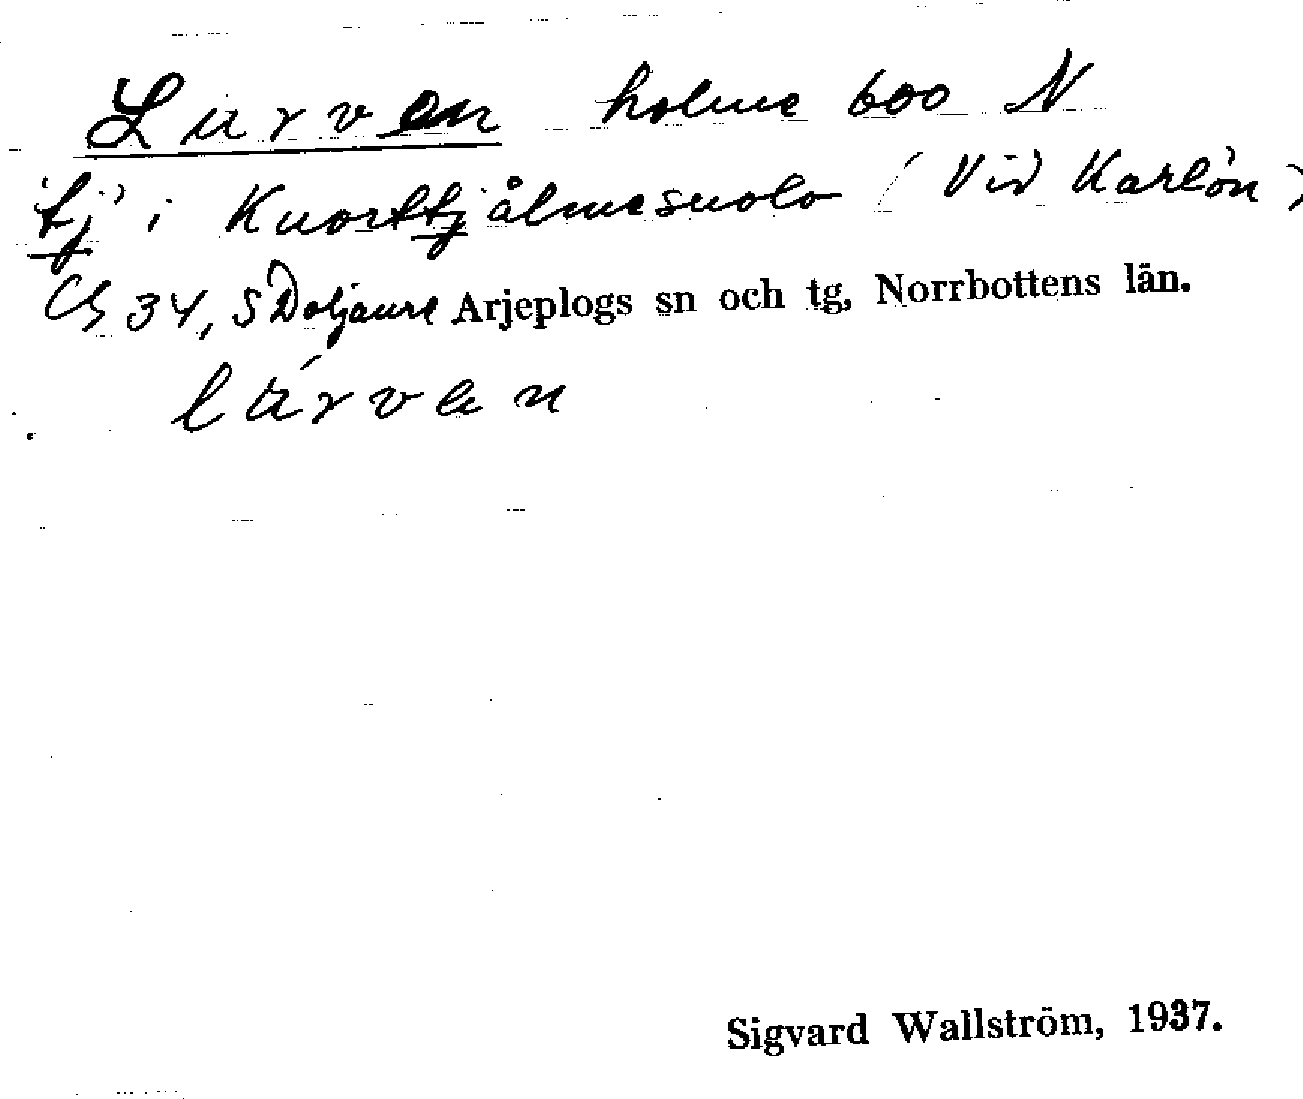 Lurven holme 600 N
tj i Kuorttjålmesuolo (Vid Karlön)
34, S Doljaure Arjeplogs sn och tg, Norrbottens län.
lúrven
Sigvard Wallström, 1937.